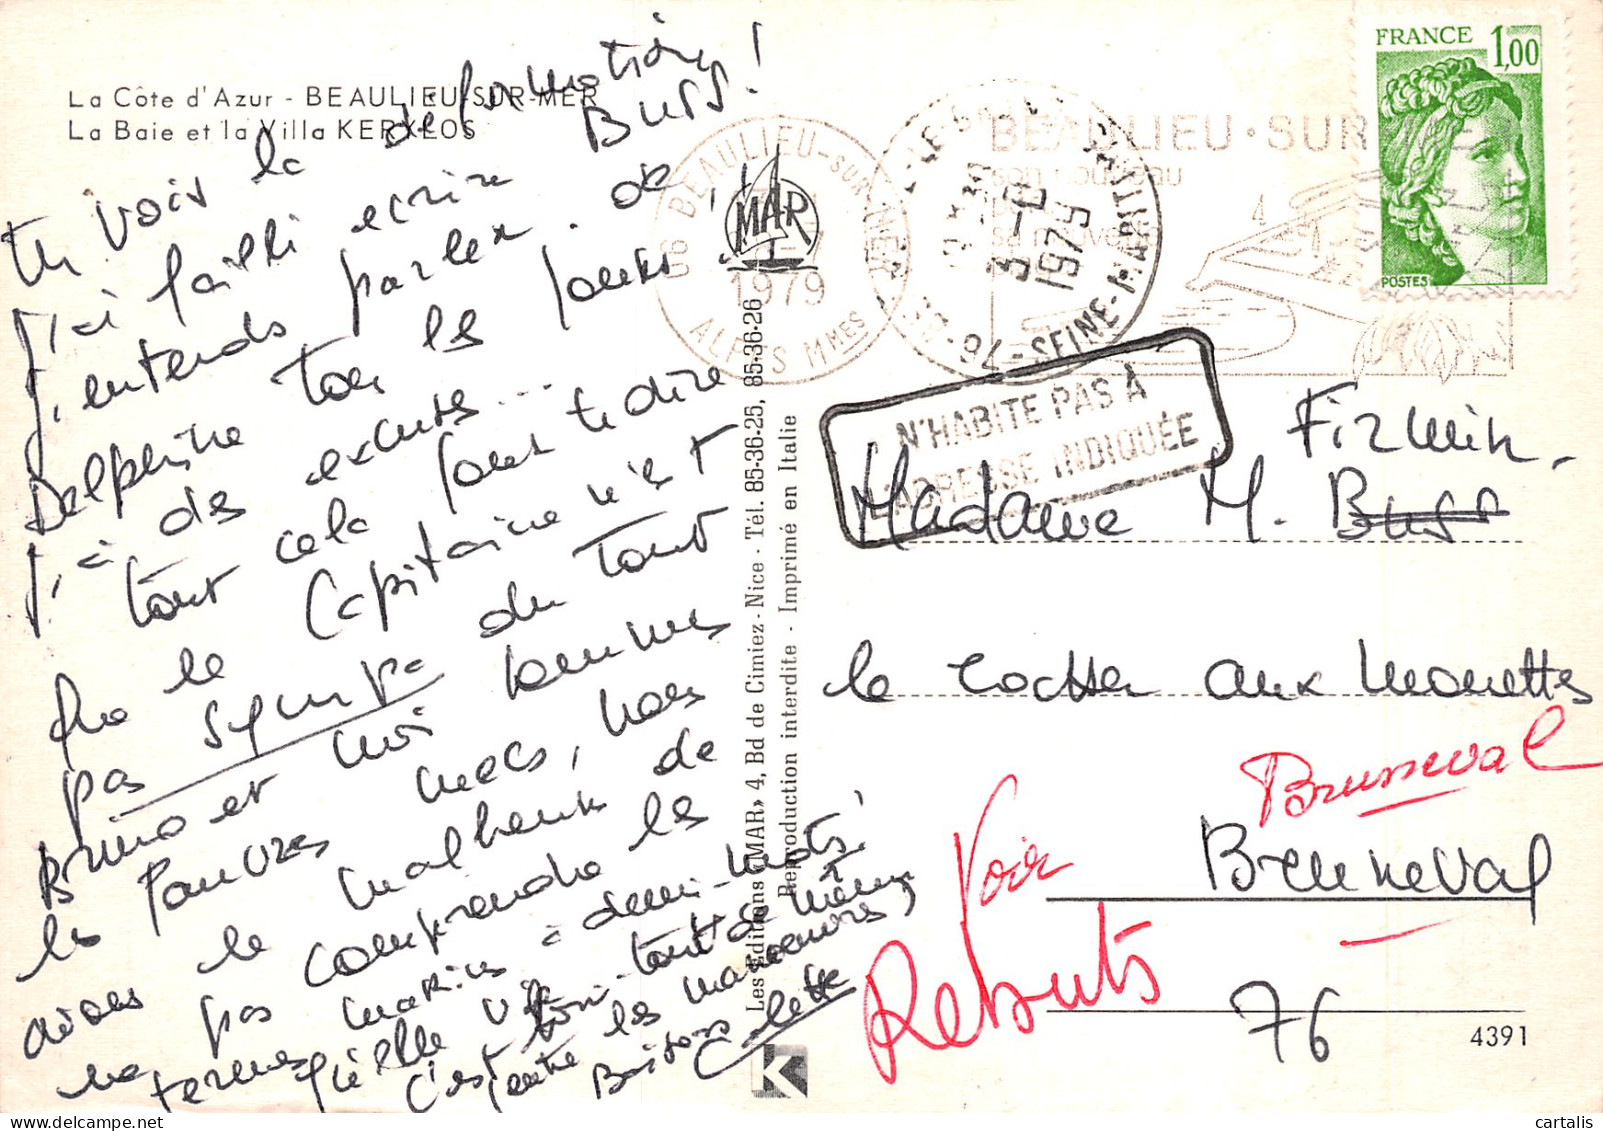 La Côte d'Azur - BEAULIEU-SUR-MER
La Baie et la Villa KERYLOS
tu vois la déformation
J'ai failli écrire BUSS!
J'entends parler de
Delphine tous les jours..!
J'ai des excuses...
tout cela pour te dire
que le Capitaine n'est
pas sympa du tout
Bruno et moi sommes
les pauvres mecs, nous
avons le malheur de
ne pas comprendre les
termes marins à demi-mots!
qu'elle vie
C'est tout de même
entre les manoeuvres,
Bisous Colette
MAR
Les Editions «MAR» 4, Bd de Cimiez - Nice - Tél. 85-36-25, 85-36-26
Reproduction interdite - Imprimé en Italie
K
06 BEAULIEU-SUR-MER
1979
ALPES Mmes
3-8
1979
76 - SEINE-MARITIME
BEAULIEU·SUR
son nouveau
FRANCE 1,00
POSTES
N'HABITE PAS À
L'ADRESSE INDIQUÉE
Firmin.
Madame M. Buss
le rocher aux mouettes
Brusseval
Bruneval
Voir
Rebuts
76
4391
© cartalis